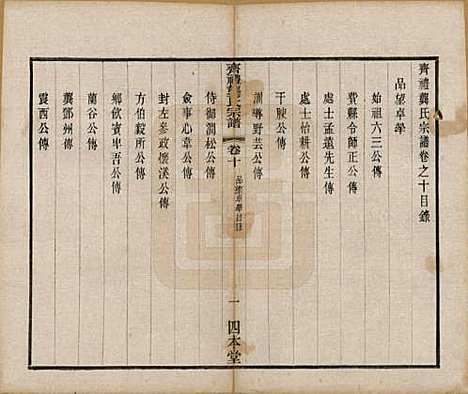 齊禮龔氏宗譜卷之十目錄
品望卓犖
始祖六三公傳
費縣令師正公傳
處士孟遠先生傳
處士怡耕公傳
干陂公傳
訓導野芸公傳
齊禮龔氏宗譜 卷十 品望卓犖目錄 一 四本堂
侍御澗松公傳
僉事心葦公傳
封左參政懷溪公傳
方伯毅所公傳
鄉飲賓卑吾公傳
蘭谷公傳
龔鄧州傳
震西公傳